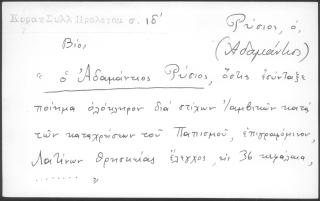 Κοραπ Συλλ Προλεγομ σ. ιδ'
Ρύσιος, ὁ,
(Ἀδαμάντιος)
Βίο,
" ὁ Ἀδαμάντιος Ρύσιος, ὅστις ἐσύνταξε
ποίημα ὁλόκληρον διὰ στίχων Ἰαμβικῶν κατὰ
τῶν καταχρήσεων τοῦ Παπισμοῦ, ἐπιγραφόμενον,
Λατίνων θρησκείας ἔλεγχος, εἰς 36 κεφάλαια,
........ "